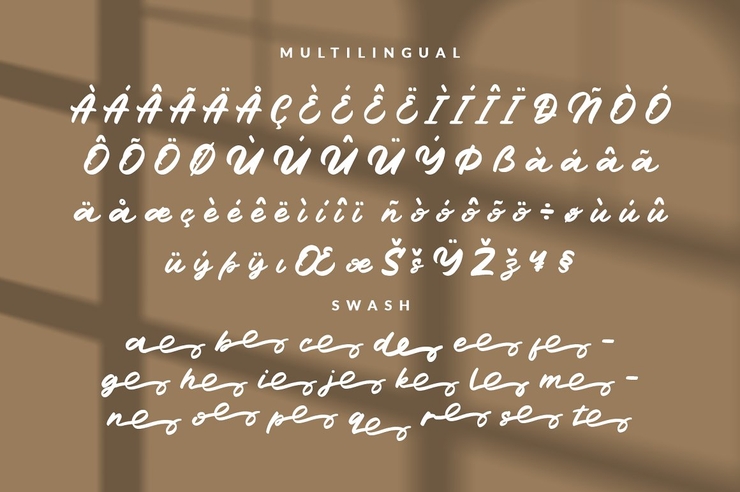 MULTILINGUAL
À Á Â Ã Ä Å Ç È É Ê Ë Ì Í Î Ï Ð Ñ Ò Ó
Ô Õ Ö Ø Ù Ú Û Ü Ý Þ ß à á â ã
ä å æ ç è é ê ë ì í î ï ñ ò ó ô õ ö ÷ ø ù ú û
ü ý þ ÿ ı Œ œ Š š Ÿ Ž ž ¥ §
SWASH
a b c d e f -
g h i j k l m -
n o p q r s t